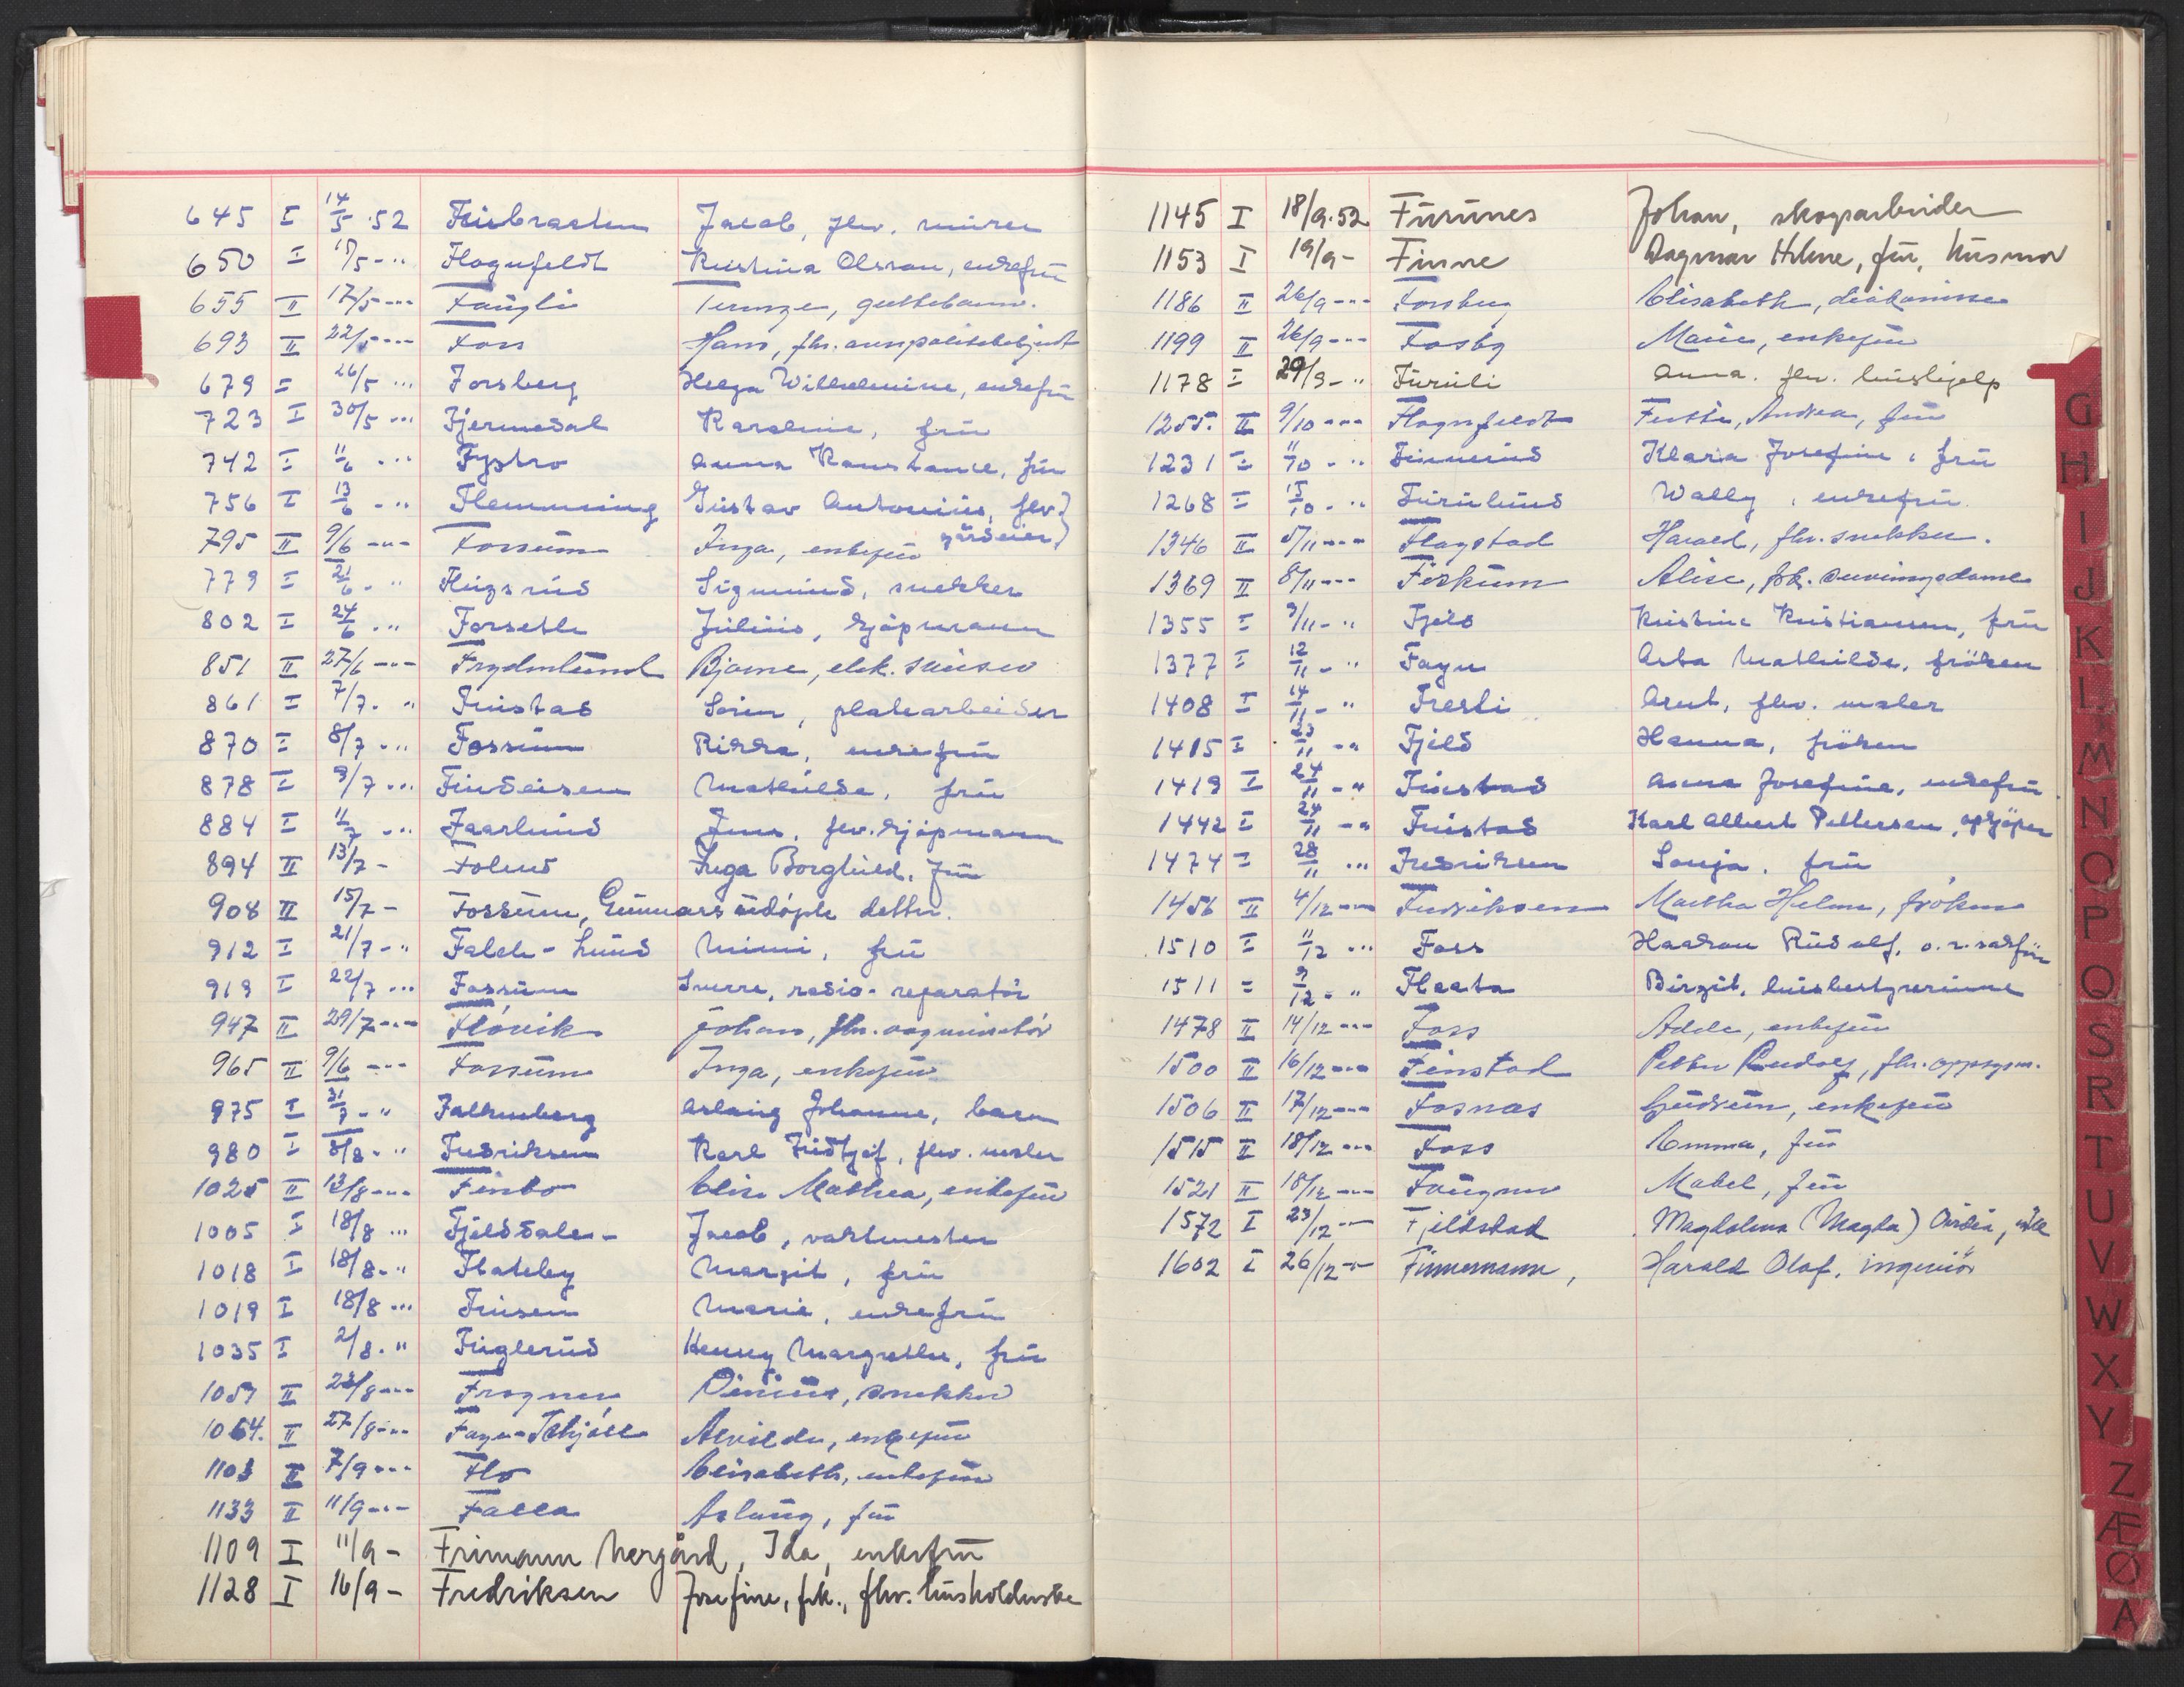 645 I 14/5 .52 Jacob, fhv. murer
650 I 17/5 - " Flognfeldt Kristina Olsson, enkefru
655 II 17/5 - " - Faugli guttebarn.
693 II 22/5 - " - Foss Hans, fhv.
679 I 26/5 - " Forsberg Helga Wilhelmine, enkefru
723 I 30/5 - " Fjermedal Karoline, frü
742 I 11/6 - " Fystro Anna Konstance, frü
756 I 13/6 - " Flemming Gustav Antonius, fhv. gårdeier
795 II 9/6 - " - Fossum Inga, enkefru
779 I 21/6 - " Flugsrud Sigmund, snekker
802 I 24/6 - " Forseth Julius, kjøpmann
851 II 27/6 - " - Frydenlund Bjarne, elek.
861 I 7/7 - " Finstad Søren, platearbeider
870 I 8/7 - " Fossum Rikka, enkefrü
878 I 9/7 - " Findeisen Mathilde, frü
884 I 11/7 - " Faarlund Jens, fhv. kjøpmann
894 II 13/7 - Inga Borghild, frü
908 II 15/7 - Fossum, Gunnars üdøpte datter.
912 I 21/7 - " Falch-Lund Mimi, frü
919 I 22/7 - " Fossum Sverre, radio-reparatør
947 II 29/7 - " - Fløvik Johan, fhv.
965 II 9/6 - " - Fossum Inga, enkefru
975 I 31/7 - " Falkenberg Aslaug Johanne, barn
980 I 5/8 - " Fredriksen Karl Fridtjof, fhv. maler
1025 II 13/8 - " - Finbo Elise Mathea, enkefrü
1005 I 18/8 - " Fjelddalen Jacob, vaktmester
1018 I 18/8 - " Flateby Margit, frü
1019 I 18/8 - " Friisen Marie, enkefrü
1035 I 2/8 - " Fuglerud Henny Margrethe, frü
1057 II 23/8 - " - Frogner snekker
1064. II 27/8 - " - Fayn-Schjøll Alvilde, enkefrü
1103 II 7/9 - " - Flo Elisabeth, enkefrü
1133 II 11/9 - " - Falla Aslaug, frü
1109 I 11/9 - Frimann Nergård, Ida, enkefrü
1128 I 16/9 - Fredriksen Josefine, frk., fhv. husholderske
1145 I 18/9.52 Furunes Johan, skogsarbeider
1153 I 19/9 - Finne Dagmar Helene, frü, husmor
1186 II 26/9 - " - Forsberg Elisabeth, diakonisse
1199 II 26/9 - " - Fosby Marie, enkefrü
1178 I 29/9 - " Furuli Anna. fhv. hüshjelp
1255. II 9/10 - " - Flognfeldt Andrea, frü
1231 I 11/10 - " Finnerud Klara Josefine, frü
1268 I 15/10 - " Furulund Wally, enkefrü.
1346 II 5/11 - " - Flagstad Harald, fhv. snekker.
1369 II 8/11 - " - Fiskum Alise, frk. serveringsdame
1355 I 3/11 - " Fjeld Kristine Kristiansen, frü
1377 I 12/11 - " Fayn Asta Mathilde, frøken
1408 I 14/11 - " Fresti Arent, fhv. maler
1415 I 23/11 - " Fjeld Hanna, frøken
1419 I 24/11 - " Finstad Anna Josefine, enkefrü.
1442 I 24/11 - " Finstad Karl Albert Pettersen, opkjøper
1474 I 28/11 - " Fredriksen Sonja, frü
1456 II 4/12 - " - Fredriksen Martha Helene, frøken
1510 I 11/12 - " Foss Haakon Rudolf, o.r.sakfør
1511 I 9/12 - " Flaata Birgit, husbestyrerinne
1478 II 14/12 - " - Foss Adele, enkefrü
1500 II 16/12 - " - Finstad Petter Rudolf, fhv. oppsysm.
1506 II 17/12 - " - Fosnæs Gudrun, enkefrü
1515 II 18/12 - " - Foss Emma, frü
1521 II 18/12 - " - Faugner Mabel, frü
1572 I 23/12 - " - Fjeldstad Magdalena (Magda)
1602 I 26/12 - " - Finnemann, Harald Olaf, ingeniør
G
H
I
J
K
L
M
N
O
P
Q
S
R
T
U
V
W
X
Y
Z
Æ
Ø
A